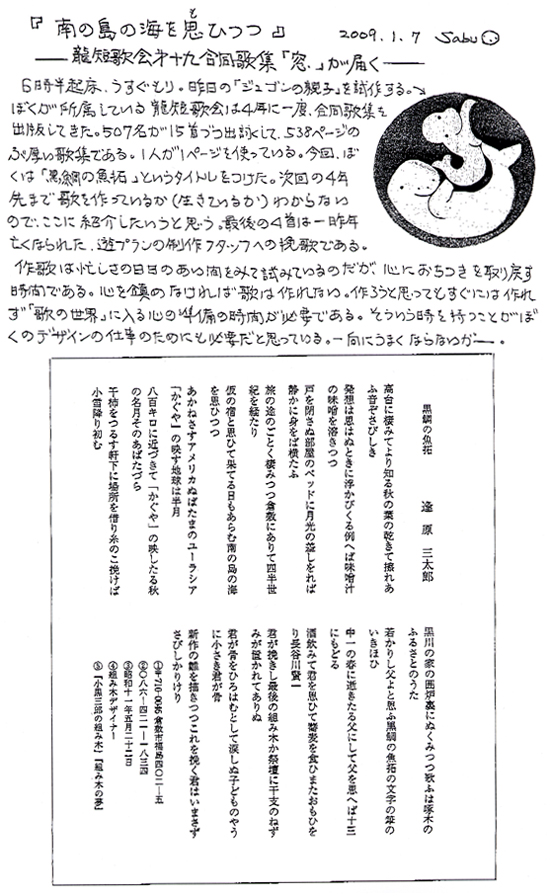 『南の島の海を思ひつつ』
も
2009.1.7 Sabu
—龍短歌会才十九合同歌集「窓」が届く—
6時半起床、うすぐもり。昨日の「ジュゴンの親子」を試作する。
ぼくが所属している龍短歌会は4年に一度、合同歌集を
出版してきた。507名が15首づつ出詠して、538ページの
ぶ厚い歌集である。1人が1ページを使っている。今回、ぼ
くは「黒鯛の魚拓」というタイトルをつけた。次回の4年
先まで歌を作っているか(生きているか)わからない
ので、ここに紹介したいと思う。最後の4首は一昨年
亡くなられた、遊プランの制作スタッフへの挽歌である。
作歌は忙しさの日日のあい間をみて試みているのだが、心におちつきを取り戻す
時間である。心を鎮めなければ歌は作れない。作ろうと思ってもすぐには作れ
ず「歌の世界」に入る心の準備の時間が必要である。そういう時を持つことがぼ
くのデザインの仕事のためにも必要だと思っている。一向にうまくならないが—。
黒鯛の魚拓
逢原 三太郎
高台に棲みてより知る秋の葉の乾きて擦れあ
ふ音ぞさびしき
発想は思はぬときに浮かびくる例へば味噌汁
の味噌を溶きつつ
戸を閉さぬ部屋のベッドに月光の差しをれば
静かに身をば横たふ
旅の途のごとく棲みつつ倉敷にありて四半世
紀を経たり
仮の宿と思ひて果てる日もあらむ南の島の海
を思ひつつ
あかねさすアメリカぬばたまのユーラシア
「かぐや」の映す地球は半月
八百キロに近づきて「かぐや」の映したる秋
の名月そのあばたづら
干柿をつるす軒下に場所を借り糸のこ挽けば
小雪降り初む
黒川の家の囲炉裏にぬくみつつ歌ふは啄木の
ふるさとのうた
若かりし父よと思ふ黒鯛の魚拓の文字の筆の
いきほひ
中一の春に逝きたる父にして父を思へば十三
にもどる
酒飲みて君を思ひて蕎麦を食ひまたおもひを
り長谷川賢一
君が挽きし最後の組み木か祭壇に干支のねず
みが置かれてありぬ
君が骨をひろはむとして涙しぬ子どものやう
に小さき君が骨
新作の雛を描きつつこれを挽く君はいまさず
さびしかりけり
①〒710-0065 倉敷市福島四〇二-五
②〇八六-四二一-一八三四
③昭和十一年五月二十二日
④組み木デザイナー
⑤『小黒三郎の組み木』『組み木の夢』